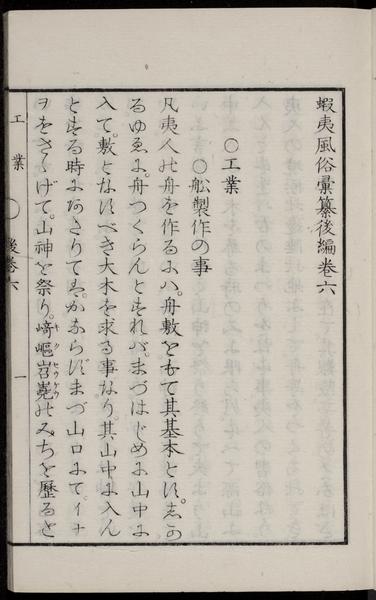 蝦夷風俗彙纂後編卷六
○工業
○舩製作の事
凡夷人の舟を作るにハ。舟敷をもて其基本とす。しか
るゆゑに。舟つくらんとすれバ。まづはじめに山中に
入て。敷となすべき大木を求る事なり。其山中に入ん
とする時にあたりてハ。かならずまづ山口にて。イナ
ヲをさゝげて。山神を祭り。﨑嶇岧嶤のみちを歷ると
工業
後卷六
一